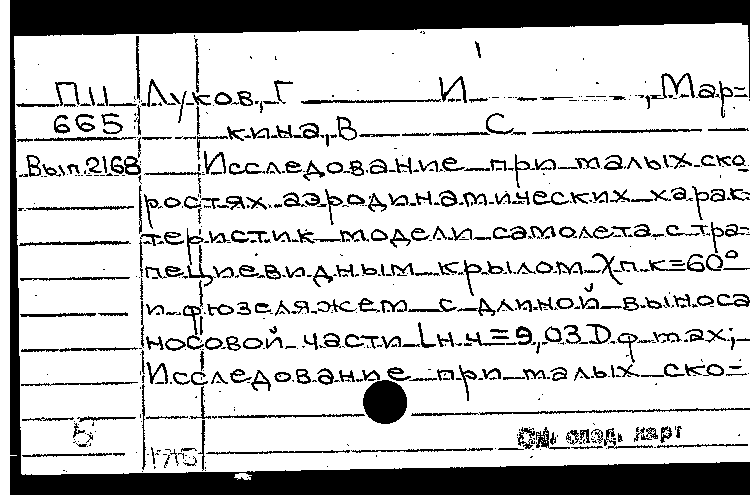 П11 Луков, Г И , Мар=
665 кина, В С
Вып.2168 Исследование при малых ско
ростях аэродинамических харак=
теристик модели самолета с тра=
пециевидным крылом χп.к=60°
и фюзеляжем с длиной выноса
носовой части Lн.ч=9,03 Dф max;
Исследование при малых ско=
Б
См. след. карт